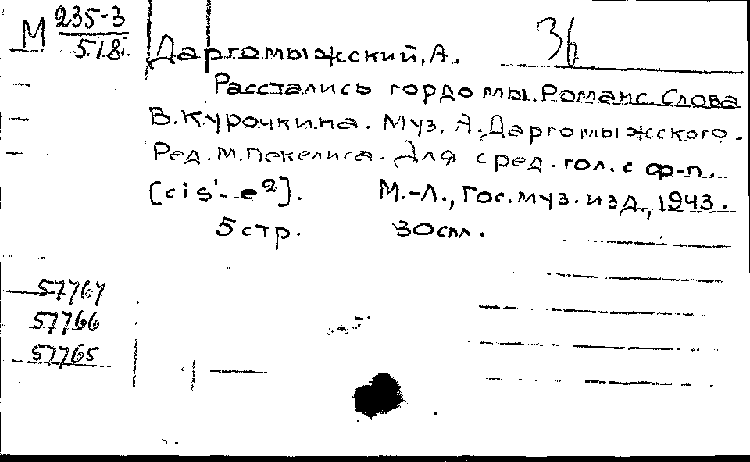 М 235-3
518
36
Даргомыжский, А.
Расстались гордо мы. Романс. Слова
В. Курочкина. Муз. А. Даргомыжского.
Ред. М. Пекелиса. Для сред. гол. с ф-п.
[cis'-e²]. М.-Л., Гос. муз. изд., 1943.
5 стр. 30 спл.
57767
57766
57765